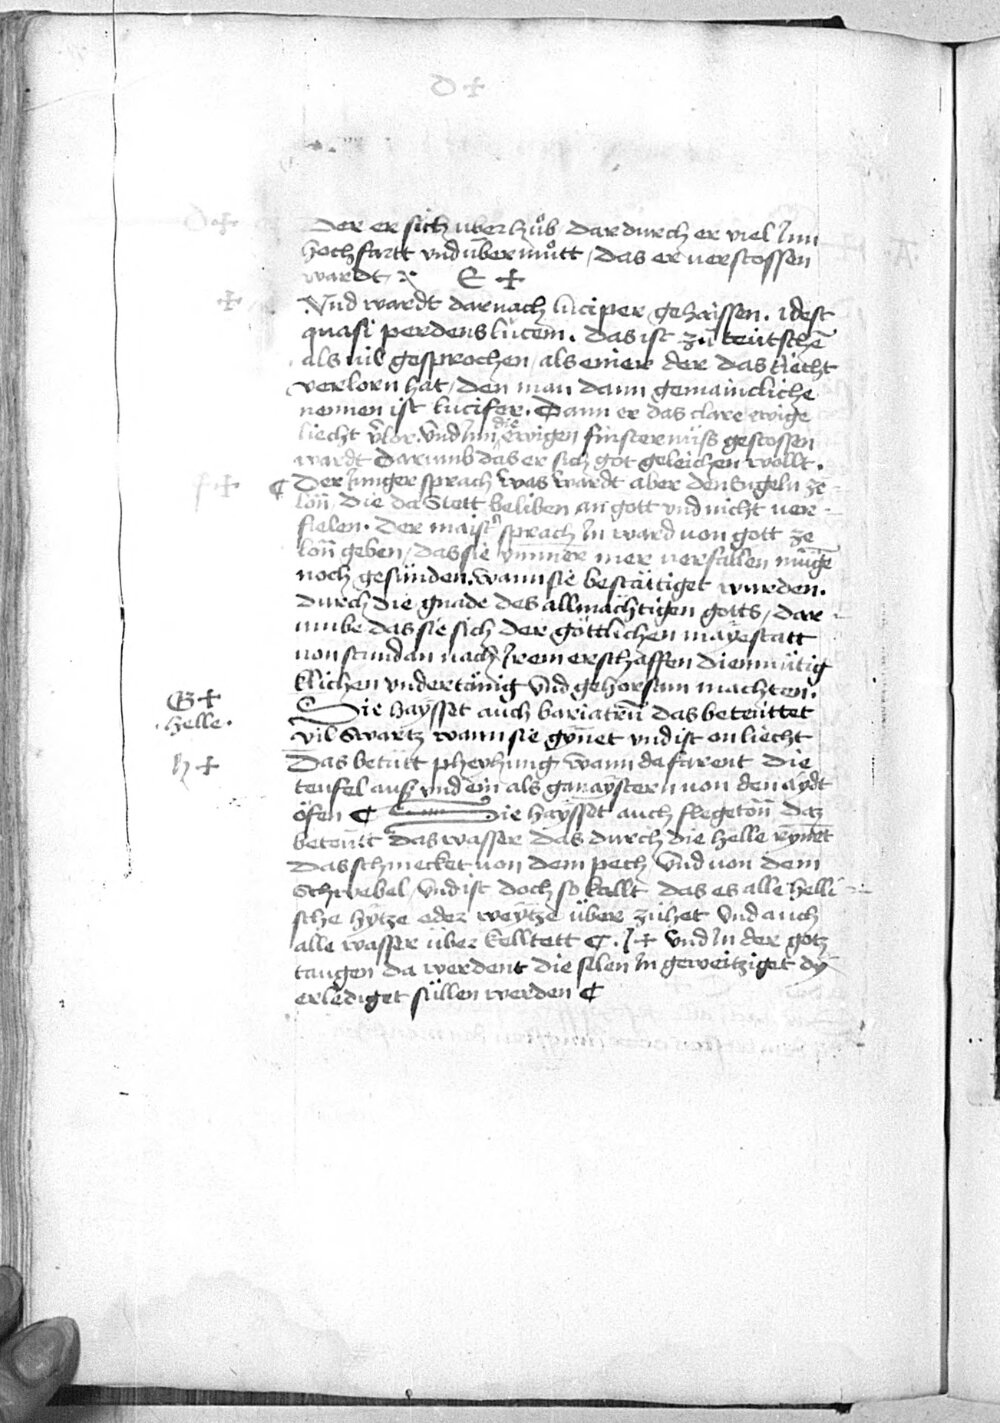 D +
D +
Der er sich uber hůb dardurch er viel Jnn
hochfartt vnd ubermůtt / das er verstossen
wardt · E +
+ Vnd wardt darnach luciper gehaissen . idest
quasi perdens lucem . das ist zu teutschē
als vil gesprochen / als einer der das liecht
verlorn hat / den man dann gemaincliche
nennen ist lucifer . Dann er das clare ewige
liecht v̄lor . vnd Jnn die ewigen finsternüss gestossen
wardt darumb das er sich got geleichen wollt .
f + ¶ Der Junger sprach was wardt aber den Engeln ze
lon̄ die da Stett beliben an gott vnd nicht ver-
fielen . der maist͛ sprach Jn ward von gott ze
lon̄ geben / das sie ym̄mer mer verfallen mu̇gē
noch gesünden . wann sie bestättiget wurden .
durch die gnade des allmächtigen gotts / dar-
umbe das sie sich der göttlichen mayestatt
von stund an nach Jrem erschaffen diemmütig
klichen vndertänig vnd gehorsam machten .
G + Sie haysset auch bariatrū das beteüttet
. helle . vil Swartz wann sie gönet vnd ist on liecht
h + Das betütt pheyhung wann da farent die
teufel auß vnd ein als ganaystern von den aydt
öfen ¶ Sie haysset auch flegeton̄ daz
beteütt das wasser das durch die helle rynnet
das schmecket von dem pech vnd von dem
Schwebel / vnd ist doch so kallt das es alle helli-
sche hytze oder weytze über zühet vnd auch
alle wasser über kelltett ¶ . J + vnd Jn der gotz
taugen da werdent die selen Jn geweitziget dy
erlediget süllen werden ¶